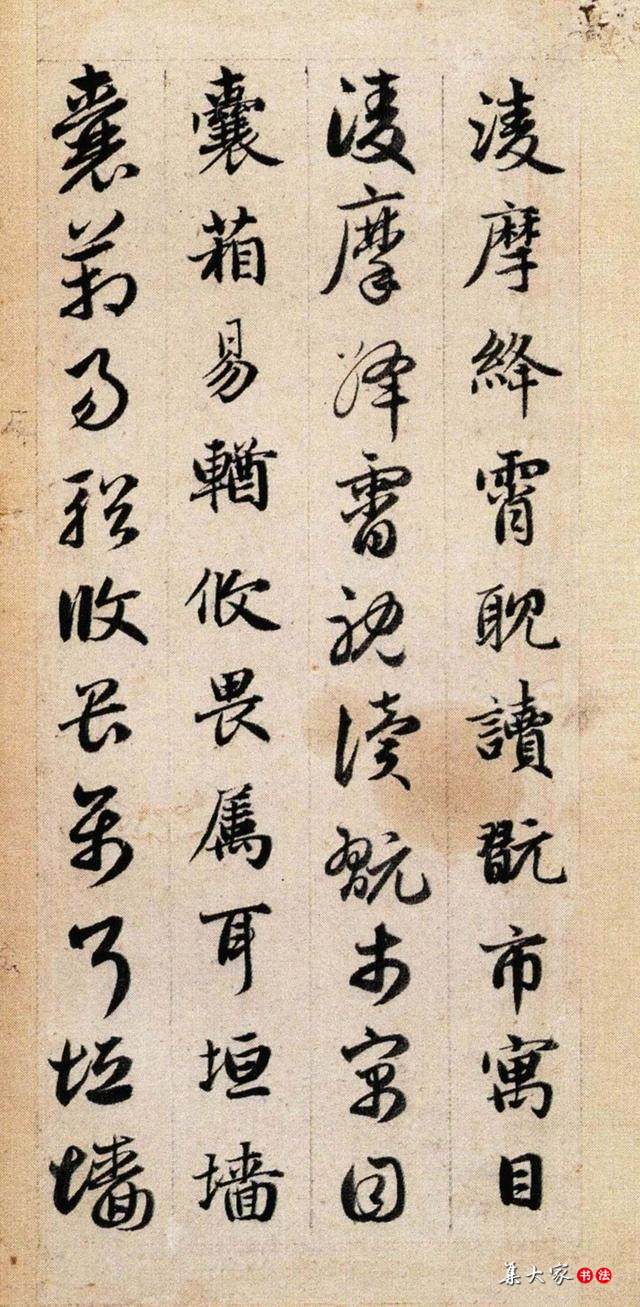 凌摩絳霄耽讀翫市寓目
凌摩絳霄耽讀翫市寓目
囊箱易輶攸畏屬耳垣墻
囊箱易輶攸畏屬耳垣墻
集大家书法